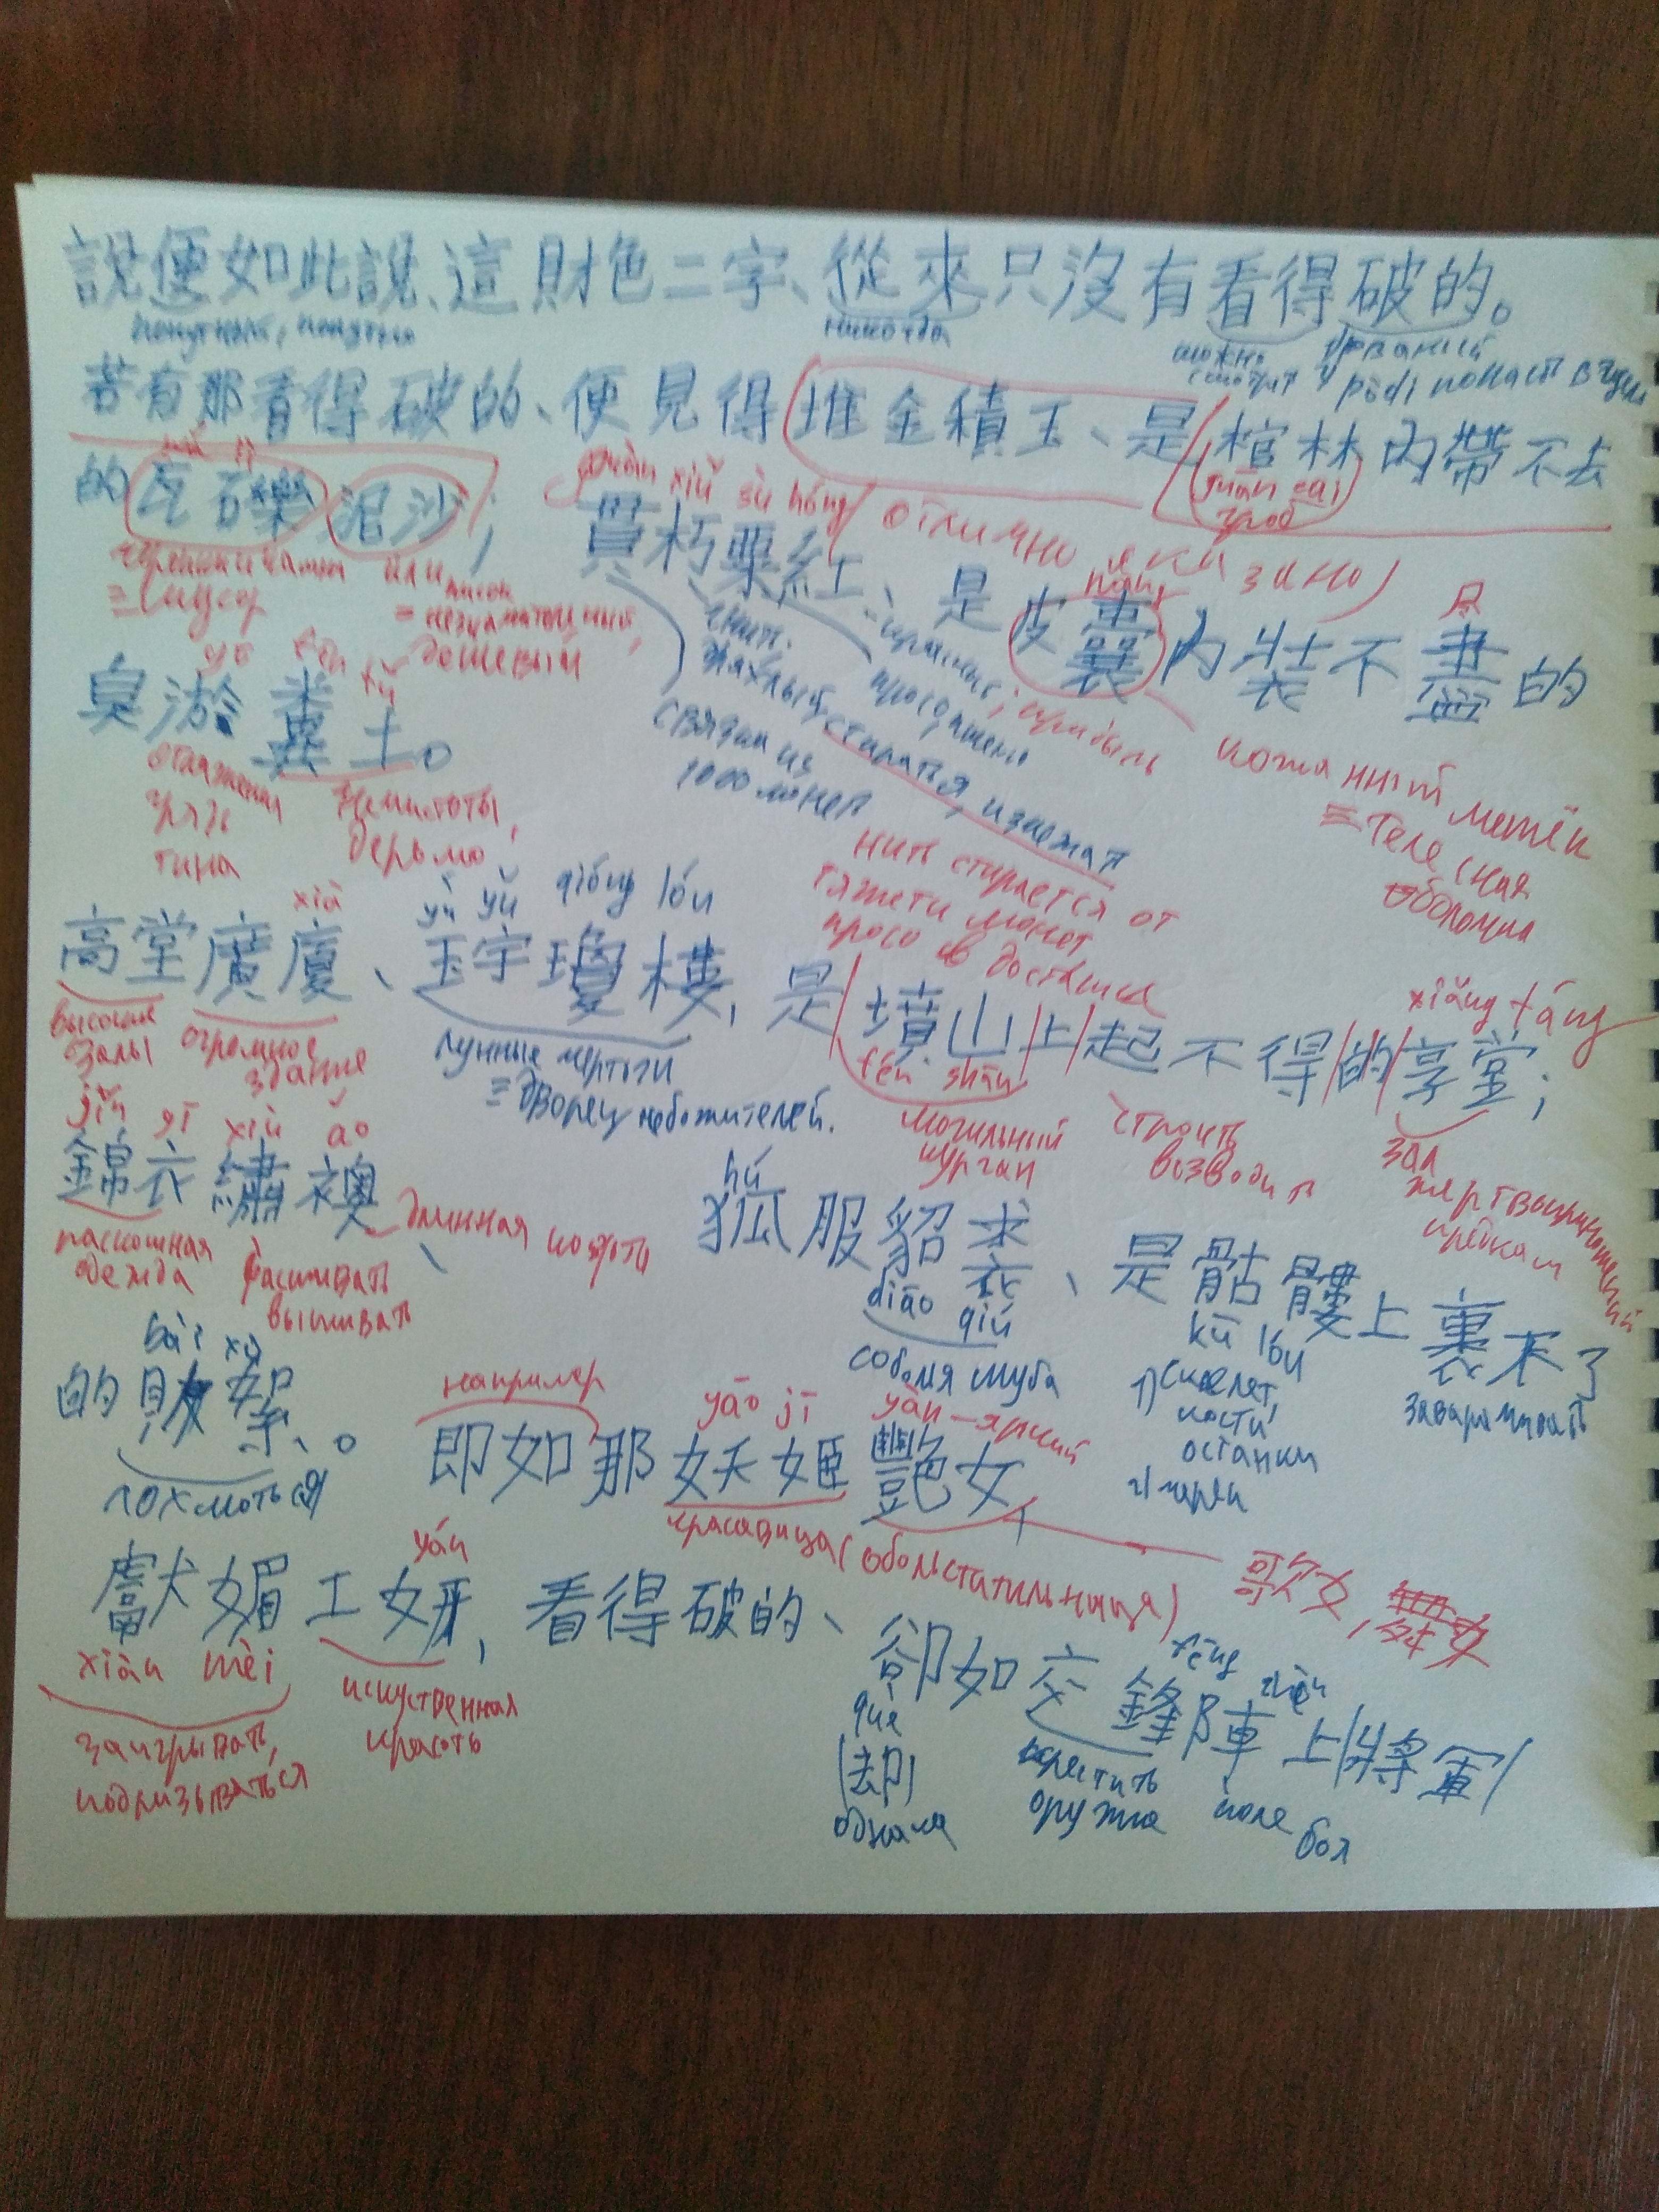 說便如此說、這財色二字、從來只沒有看得破的。
никогда
можно
若有那看得破的、便見得堆金積玉、是棺材內帶不去
的瓦礫泥沙;
guān cai
гроб
xiǔ sù hóng
貫朽粟紅、是皮囊內裝不盡的
náng
= мусор
дешёвый
гнить
связка из
1000 монет
стираться
кожаный мешок
= телесная
оболочка
臭淤糞土。
yū fèn tǔ
грязь
тина
нечистоты,
дерьмо
нить стирается от
тяжести монет
xià
yù yǔ qióng lóu
高堂廣廈、玉宇瓊樓,是墳山上起不得的享堂;
fén shān
xiǎng táng
высокие
залы
огромное
здание
лунные чертоги
= дворец небожителей.
могильный
курган
строить
возводить
зал
жертвоприношений
предкам
jǐn yī xiù ǎo
錦衣繡襖、
роскошная
одежда
расшивать
вышивать
длинная кофта
hú
狐服貂裘、是骷髏上裹不了
diāo qiú
соболья шуба
kū lóu
1) скелет,
кости
останки
2) череп
заворачивать
的敗絮。
bài xù
лохмотья
например
yāo jī
yàn – яркий
即如那妖姬艷女,
красавица (обольстительница)
歌女,
yán
獻媚工妍,看得破的、
xiàn mèi
заигрывать,
подлизываться
искуственная
красота
卻如交鋒陣上將軍
què
(却)
однако
fēng
zhèn
скрестить
оружие
поле боя